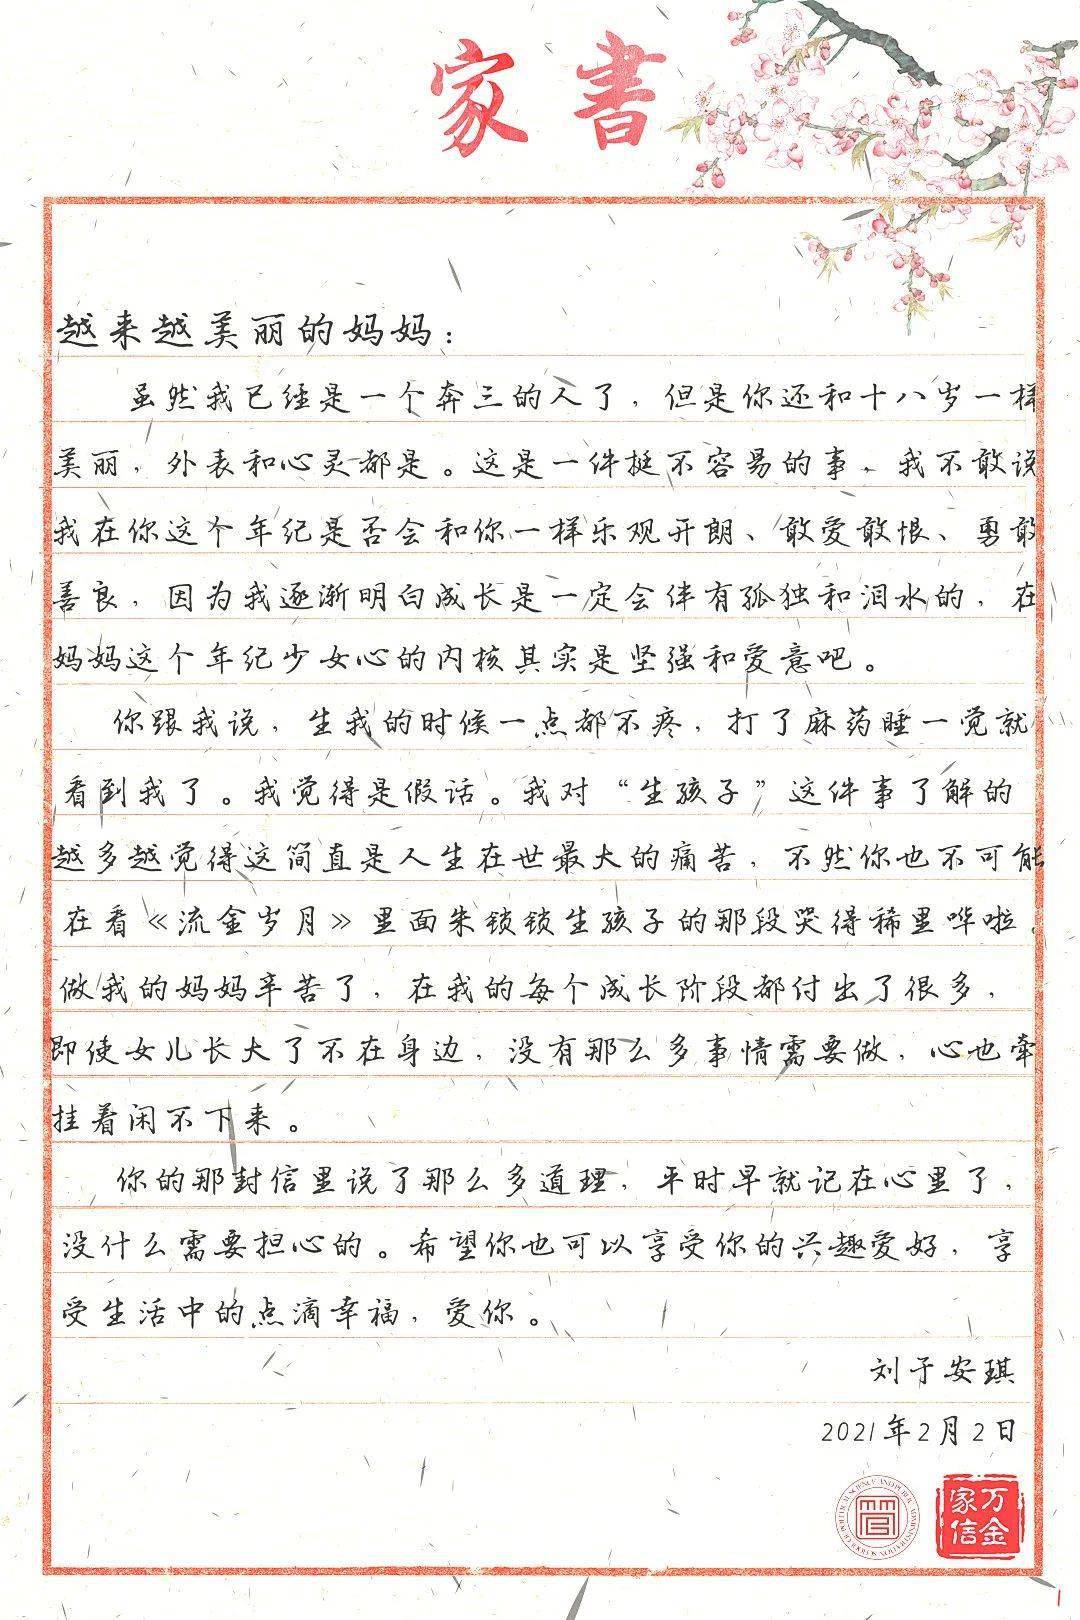 家書
越来越美丽的妈妈：
虽然我已经是一个奔三的人了，但是你还和十八岁一样
美丽，外表和心灵都是。这是一件挺不容易的事，我不敢说
我在你这个年纪是否会和你一样乐观开朗、敢爱敢恨、勇敢
善良，因为我逐渐明白成长是一定会伴有孤独和泪水的，在
妈妈这个年纪少女心的内核其实是坚强和爱意吧。
你跟我说，生我的时候一点都不疼，打了麻药睡一觉就
看到我了。我觉得是假话。我对“生孩子”这件事了解的
越多越觉得这简直是人生在世最大的痛苦，不然你也不可能
在看《流金岁月》里面朱锁锁生孩子的那段哭得稀里哗啦。
做我的妈妈辛苦了，在我的每个成长阶段都付出了很多，
即使女儿长大了不在身边，没有那么多事情需要做，心也牵
挂着闲不下来。
你的那封信里说了那么多道理，平时早就记在心里了，
没什么需要担心的。希望你也可以享受你的兴趣爱好，享
受生活中的点滴幸福，爱你。
刘于安琪
2021年2月2日
SCHOOL OF POLITICAL SCIENCE AND PUBLIC ADMINISTRATION
万金
家信
1